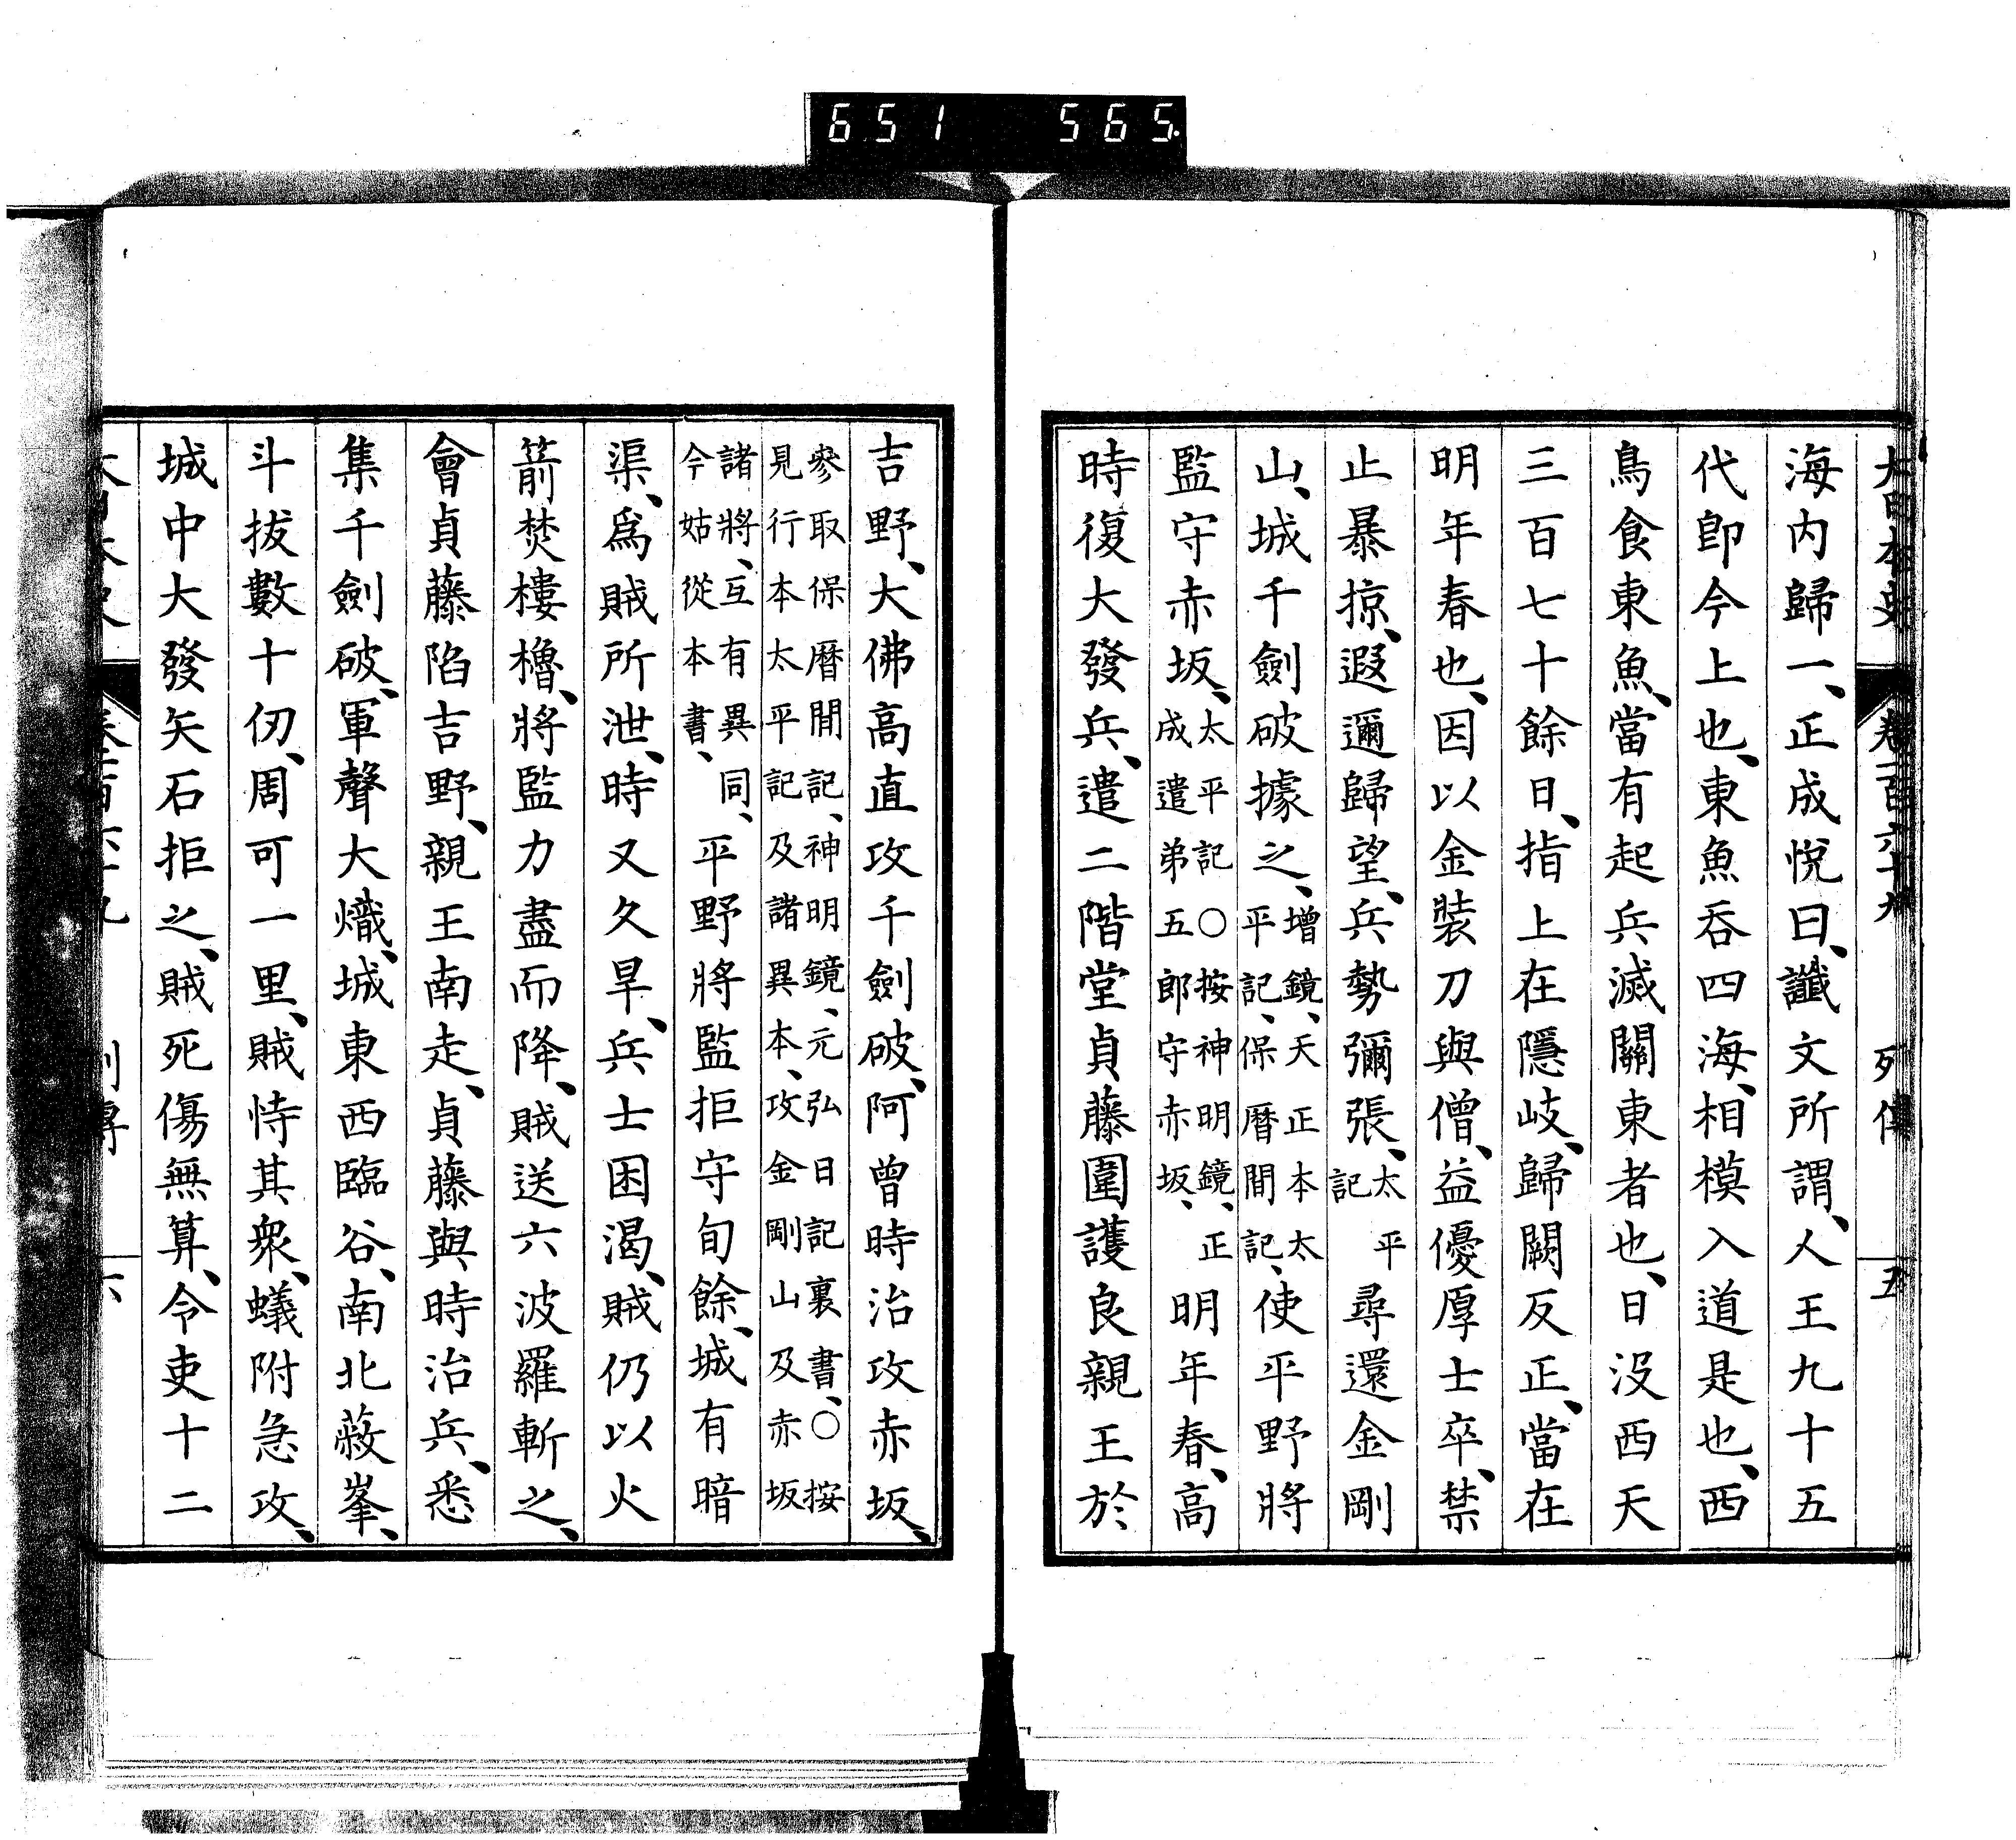 651 565
大日本史 卷一百六十九 列傳 五
海内歸一、正成悅曰、讖文所謂、人王九十五
代卽今上也、東魚吞四海、相模入道是也、西
鳥食東魚、當有起兵滅關東者也、日沒西天
三百七十餘日、指上在隱岐、歸闕反正、當在
明年春也、因以金裝刀與僧、益優厚士卒、禁
止暴掠、遐邇歸望、兵勢彌張、太平記尋還金剛
山、城千劍破據之、增鏡、天正本太平記、保曆間記、使平野將
監守赤坂、太平記○按神明鏡、正成遣弟五郎守赤坂、明年春、高
時復大發兵、遣二階堂貞藤圍護良親王於
吉野、大佛高直攻千劍破、阿曾時治攻赤坂、
參取保曆間記、神明鏡、元弘日記裏書、○按
見行本太平記及諸異本、攻金剛山及赤坂
諸將、互有異同、今姑從本書、平野將監拒守旬餘、城有暗
渠、爲賊所泄、時又久旱、兵士困渴、賊仍以火
箭焚樓櫓、將監力盡而降、賊送六波羅斬之、
會貞藤陷吉野、親王南走、貞藤與時治兵、悉
集千劍破、軍聲大熾、城東西臨谷、南北蔽峯、
斗拔數十仞、周可一里、賊恃其衆、蟻附急攻、
城中大發矢石拒之、賊死傷無算、令吏十二